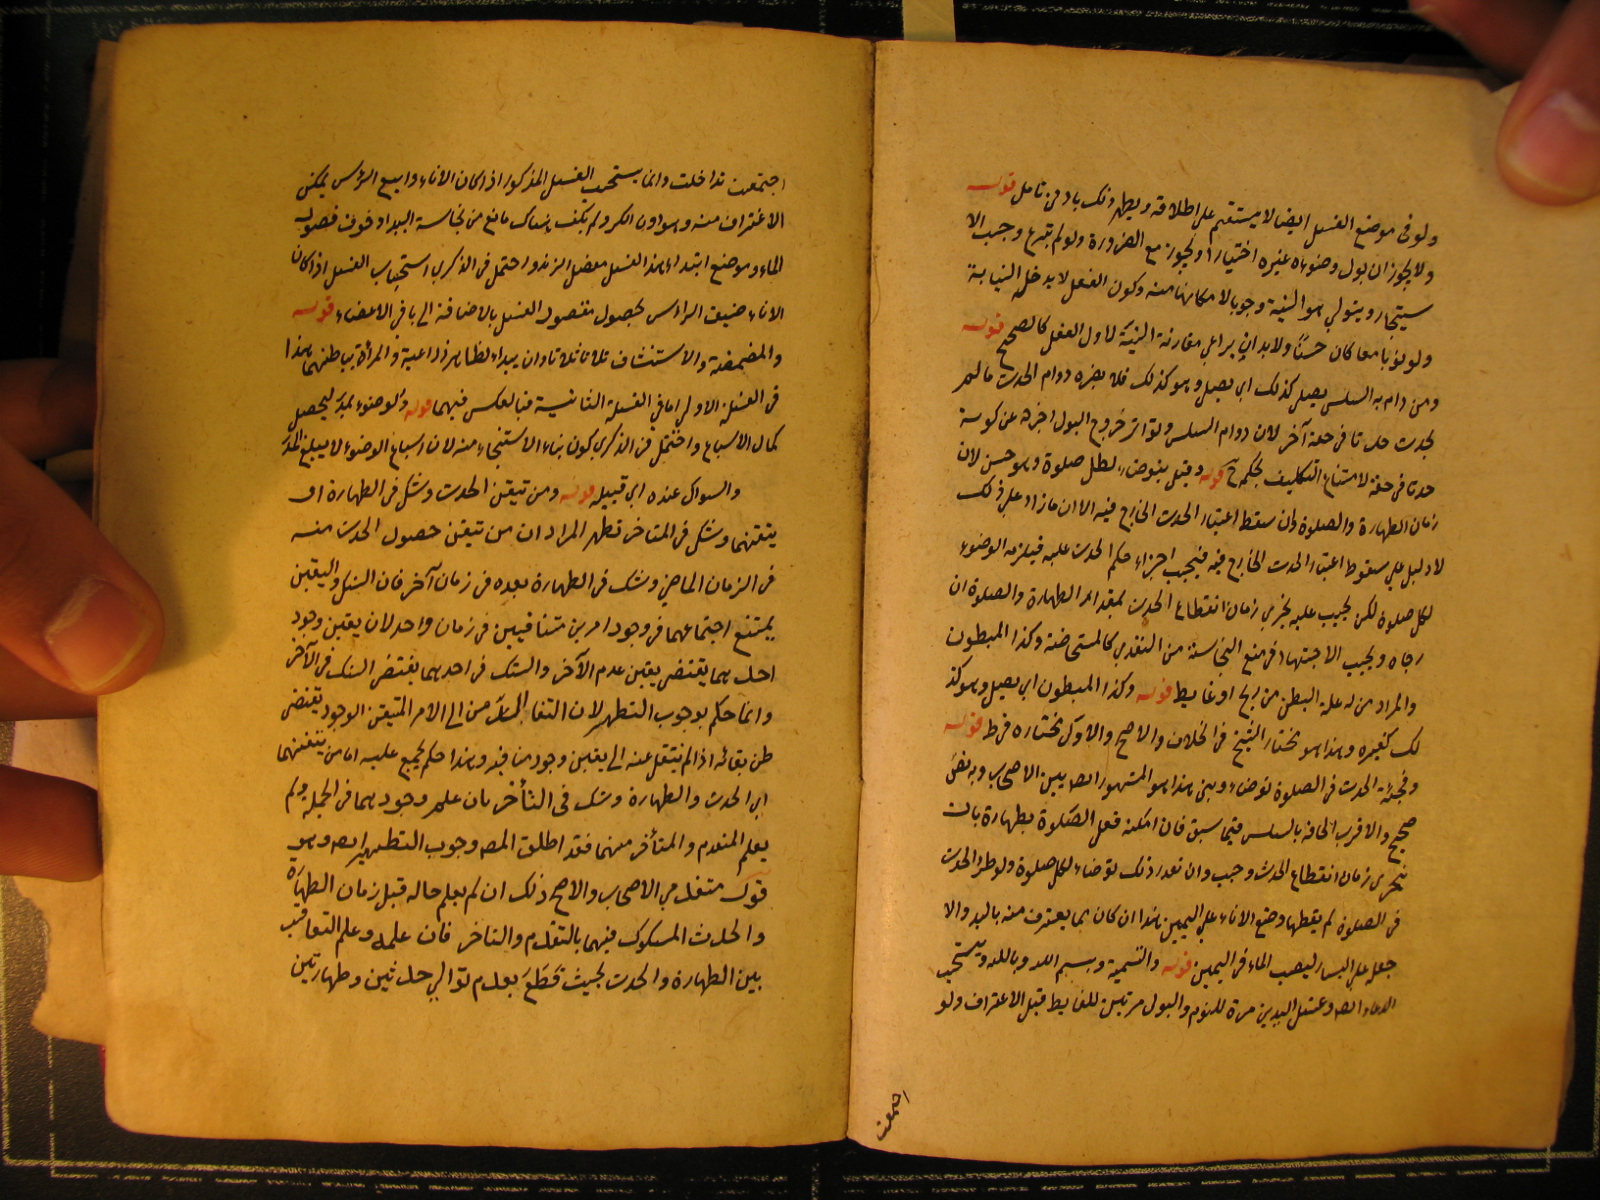 ولو فى موضع الغسل ايضا لا يستقيم على اطلاقه ويظهر ذلك بادنى تامل قوله
ولا يجوز ان يولى وضوءه غيره اختيارا ويجوز مع الضرورة ولو لم تبرع وجب الا
ستيجار ويتولى هو النية وجوبا لامكانها منه وكون الفعل لا يدخل النيابة
ولو نويا معا كان حسنا ولا بد ان يراعى مقارنة النية لاول الفعل كالصحيح قوله
ومن دام به السلس يصلى كذلك اى يصلى وهو كذلك فلا يضره دوام الحدث ما لم
يحدث حدثا فى حقه آخر لان دوام السلس وتواتر خروج البول اخرجه عن كونه
حدثا فى حقه لامتناع التكليف بحكمه ح قوله وقيل يتوضاء لكل صلوة وهو حسن لان
زمان الطهارة والصلوة وان سقط اعتبار الحدث الخارج فيه الا ان ما زاد على ذلك
لا دليل على سقوط اعتبار الحدث الخارج فيه فيجب اجراء حكم الحدث عليه فيلزمه الوضوء
لكل صلوة لكن يجب عليه تحرى زمان انقطاع الحدث بمقدار الطهارة والصلوة ان
رجاه ويجب الاجتهاد فى منع النجاسة من التعدى كالمستحاضة وكذا المبطون
والمراد من به علة البطن من ريح او غايط قوله وكذا المبطون اى يصلى وهو كذ
لك كغيره وهذا هو مختار الشيخ فى الخلاف والاصح والاول مختاره فى ط قوله
وفجئه الحدث فى الصلوة توضاء وبنى هذا هو المشهور ايضا بين الاصحاب وبه نص
صحيح والاقرب الحاقه بالسلس فيما سبق فان امكنه فعل الصلوة بطهارة بان
يتحرى زمان انقطاع الحدث وجب وان تعذر ذلك توضاء لكل صلوة ولو طرا الحدث
فى الصلوة لم يقطعها وضع الاناء على اليمين هذا ان كان مما يغترف منه باليد والا
جعل على اليسار ليصب الماء فى اليمين قوله والتسمية وبسم الله وبالله ويستحب
الدعاء ايضا وغسل اليدين مرة للنوم والبول مرتين للغايط قبل الاغتراف ولو
اجتمعت
اجتمعت تداخلت وانما يستحب الغسل المذكور اذا كان الاناء واسع الراس يمكن
الاغتراف منه وهو دون الكر ولم يكن هناك مانع من نجاسة اليد او خوف فضول
الماء وموضع ابتداء هذا الغسل مفصل الزند واحتمل فى الذكرى استحباب الغسل اذا كان
الاناء ضيق الراس لحصول مقصود الغسل بالاضافة الى باقى الاعضاء قوله
والمضمضة والاستنشاق ثلاثا ثلاثا وان يبداء لظاهر ذراعيه والمراة بباطنهما هذا
فى الغسلة الاولى اما فى الغسلة الثانية فبالعكس فيهما قوله والوضوء بمد ليحصل
كمال الاسباغ واحتمل فى الذكرى كون ماء الاستنجاء منه لان اسباغ الوضوء لا يبلغ المد
والسواك عنده اى قبيله قوله ومن تيقن الحدث وشك فى الطهارة او
يتقنهما وشك فى المتاخر تطهر المراد ان من تيقن حصول الحدث منه
فى الزمان الماضى وشك فى الطهارة بعده فى زمان آخر فان الشك واليقين
يمتنع اجتماعهما فى وجود امرين متنافيين فى زمان واحد لان يقين وجود
احدهما يقتضى يقين عدم الآخر والشك فى احدهما يقتضى الشك فى الآخر
وانما حكم بوجوب التطهر لان التفات من الى الامر المتيقن الوجود يقتضى
ظن بقائه اذا لم ينتقل عنه الى يقين وجود منافيه وهذا حكم مجمع عليه اما من يتقنهما
اى الحدث والطهارة وشك فى التأخر بان علم وجودهما فى الجملة ولم
يعلم المتقدم والمتأخر منهما فقد اطلق المص وجوب التطهير ايضا وهو
قول متقدمى الاصحاب والاصح ذلك ان لم يعلم حاله قبل زمان الطهارة
والحدث المشكوك فيهما بالتقدم والتاخر فان علمه وعلم التعاقب
بين الطهارة والحدث بحيث قطع بعدم توالى حدثين وطهارتين